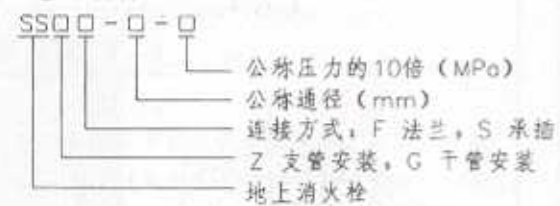 SS□□-□-□
公称压力的10倍(MPa)
公称通径(mm)
连接方式,F 法兰,S 承插
Z 支管安装,G 干管安装
地上消火栓